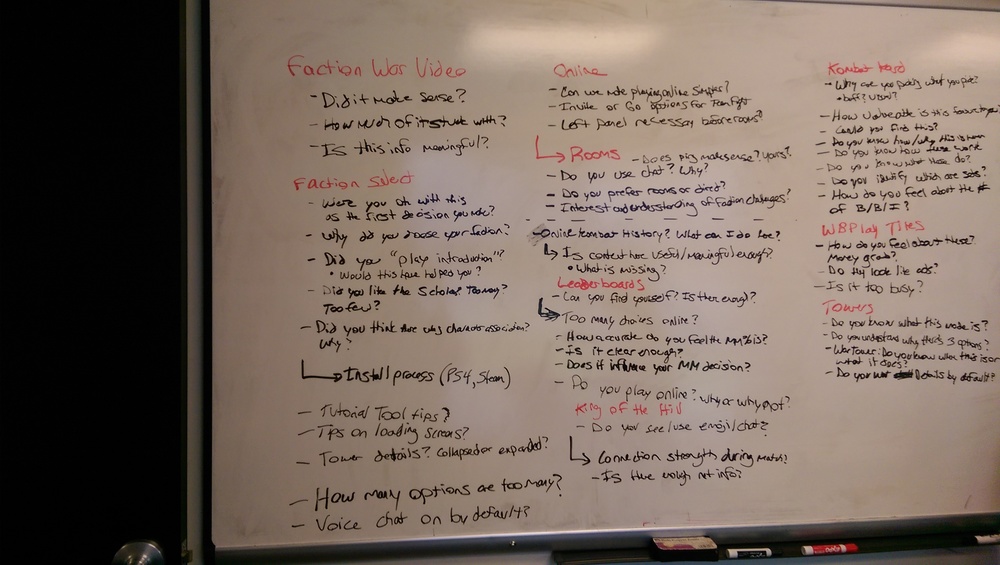 Faction War Video
- Did it make sense?
- How much of it stuck with?
- Is this info meaningful?
Faction Select
- Were you ok with this
as the first decision you made?
- Why did you choose your faction?
- Did you "play introduction"?
• Would this have helped you?
- Did you like the Scholar Too many?
Too few?
- Did you think there was character association?
Why?
Install process (PS4, Steam)
- Tutorial Tool tips?
- Tips on loading screens?
- Tower details? Collapsed or expanded?
- How many options are too many?
- Voice chat on by default?
Online
- Can we make playing online simpler?
- Invite or Go options for Team fight
- Left panel necessary before rooms?
Rooms - Does ping make sense? Yours?
- Do you use chat? Why?
- Do you prefer rooms or direct?
- Interest and understanding of faction challenges?
- Online Kombat History? What can I do here?
Is context here useful/meaningful enough?
• What is missing?
Leaderboards
- Can you find yourself? Is there enough?
Too many choices online?
- How accurate do you feel the MM% is?
- Is it clear enough?
- Does it influence your MM decision?
- Do you play online? Why or why not?
King of the Hill
- Do you see/use emoji/chat?
Connection strength during match?
- Is there enough net info?
Kombat Kard
- Why are you picking what you pick?
• buff? Visual?
- How valuable is this feature to you?
- Could you find this?
- Do you know how/why this is here
- Do you know how these work
- Do you know what these do?
- Do you identify which are sets?
- How do you feel about the #
of B/B/I?
WBPlay Tiles
- How do you feel about these?
Money grab?
- Do they look like ads?
- Is it too busy?
Towers
- Do you know what this mode is?
- Do you understand why there's 3 options?
- War Tower: Do you know what this is or
what it does?
- Do you want Details by default?